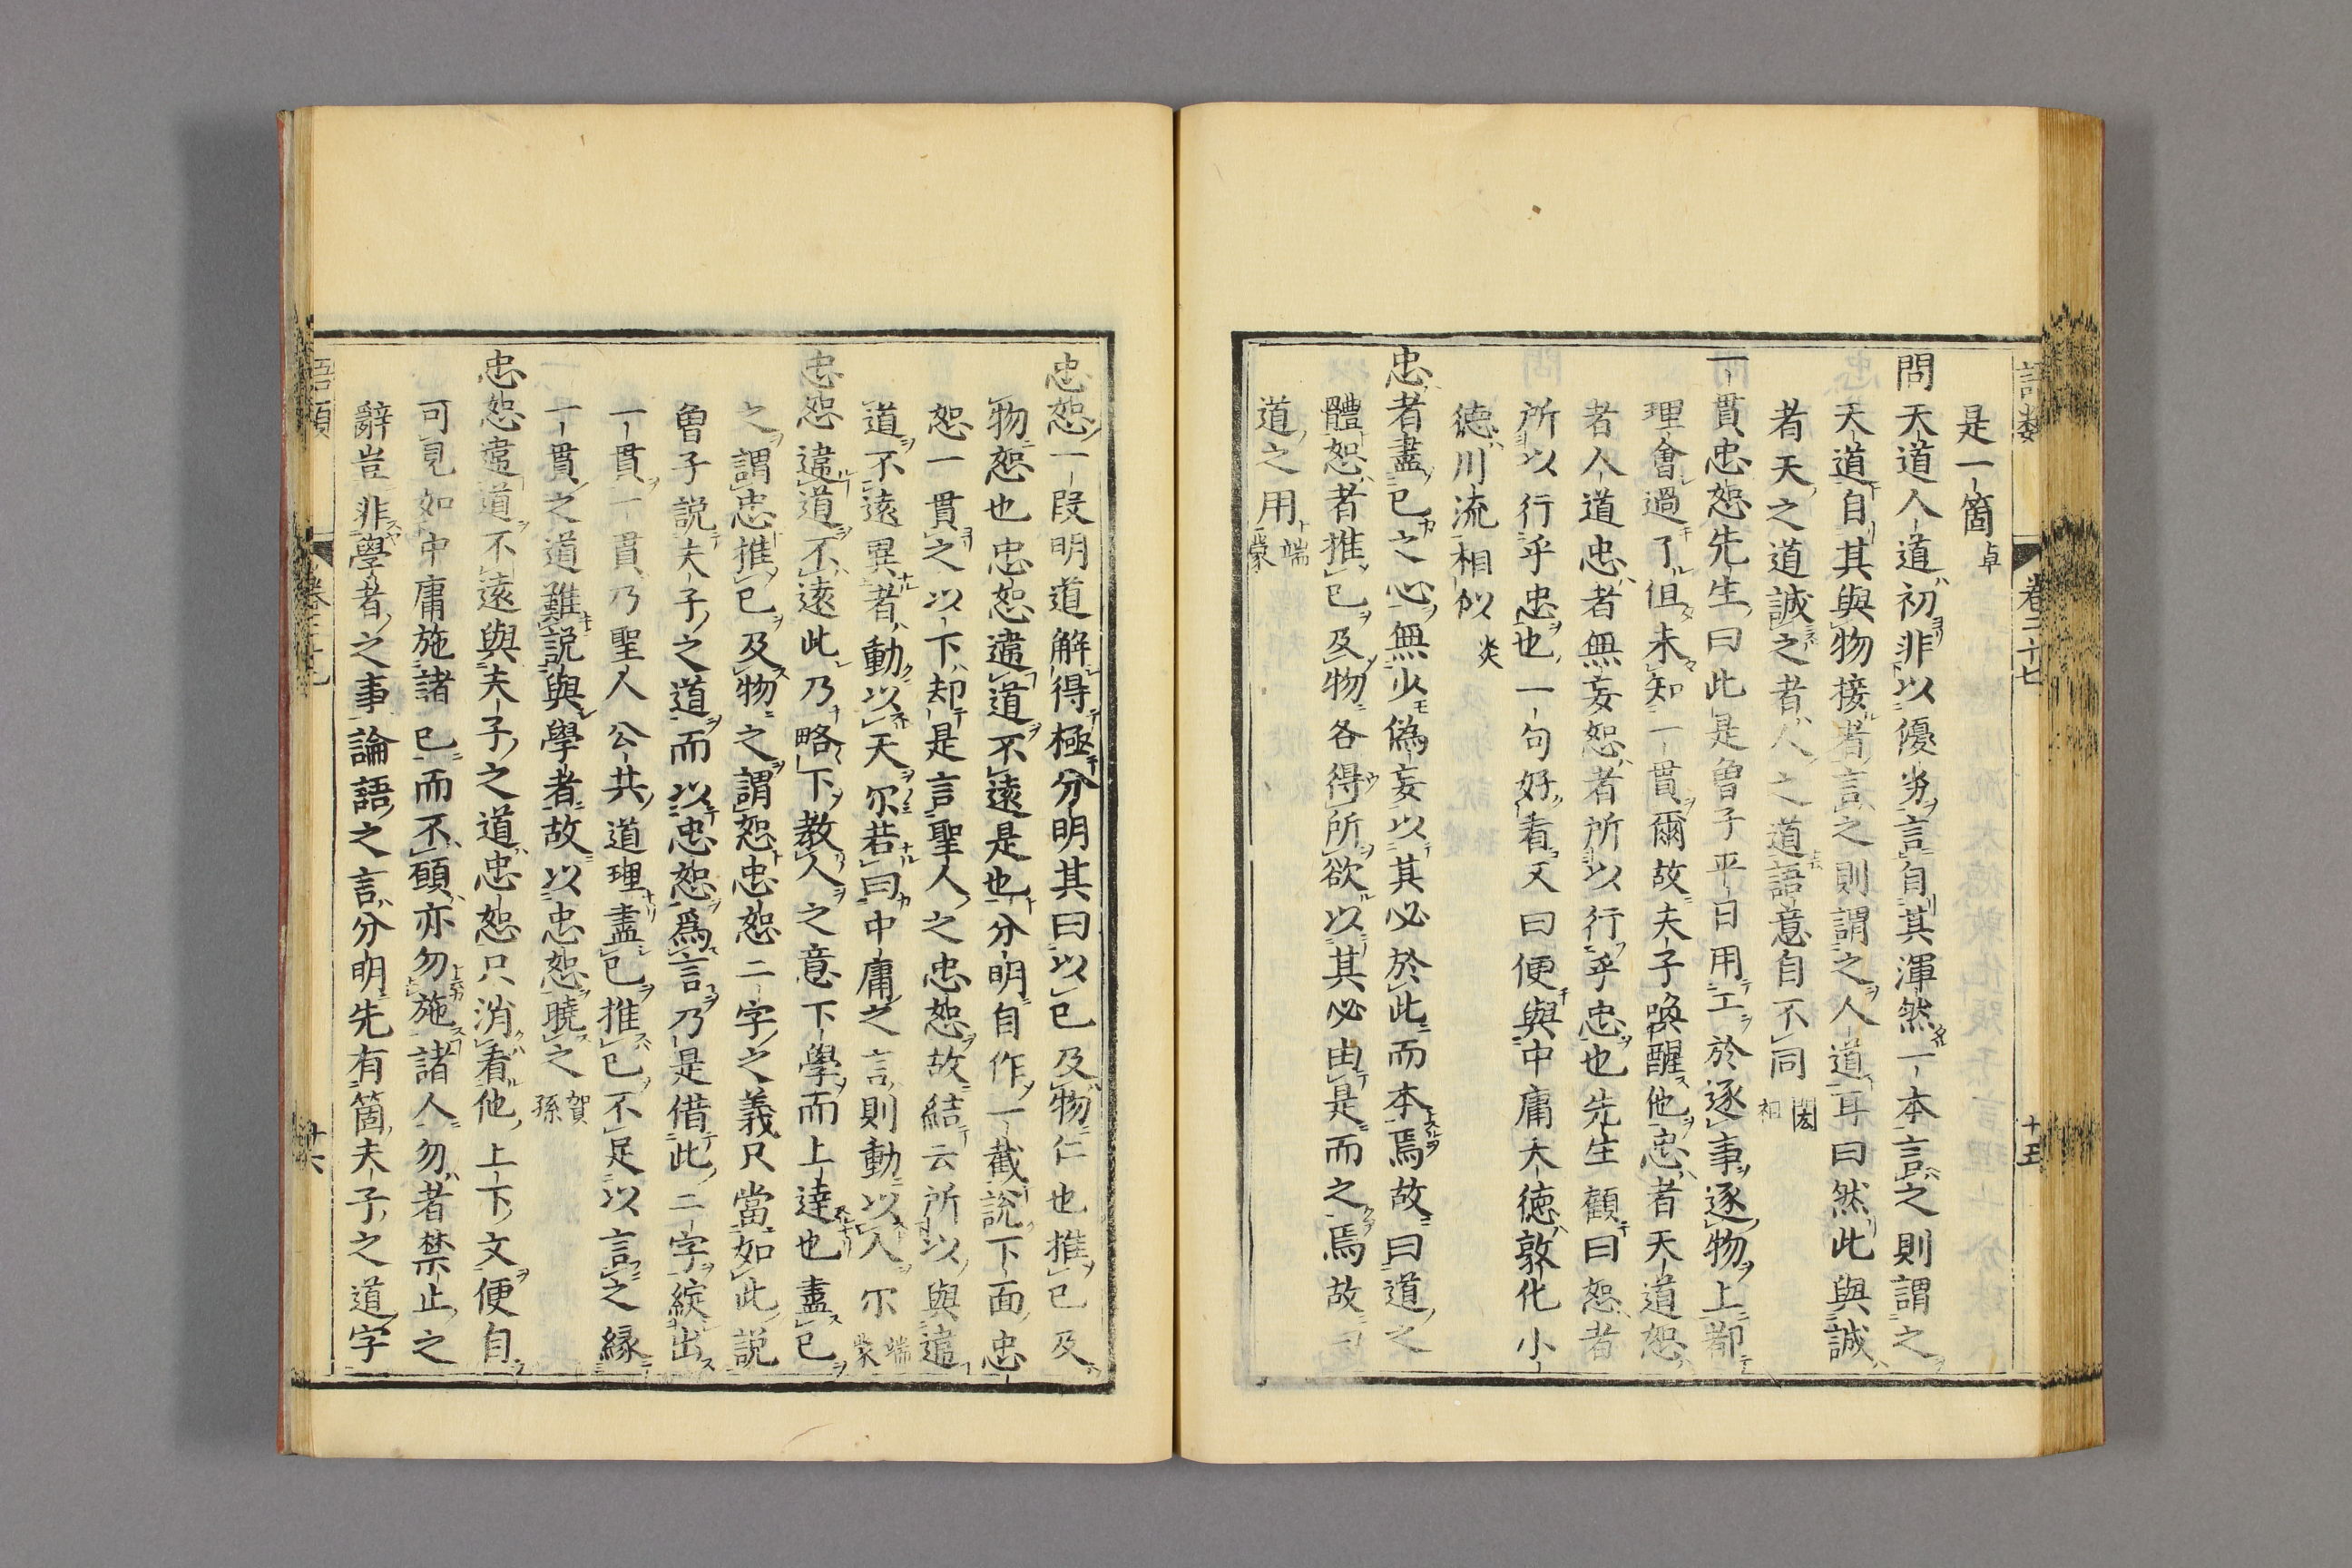 卷二十七
十五
是一箇卓
問天道人道初非以優劣言自其渾然一本言之則謂之
天道自其與物接者言之則謂之人道耳曰然此與誠
者天之道誠之者人之道語意自不同閎祖
一貫忠恕先生曰此是曾子平日用工於逐事逐物上都
理會過了但未知一貫爾故夫子喚醒他忠者天道恕
者人道忠者無妄恕者所以行乎忠也先生顧曰恕者
所以行乎忠也一句好看又曰便與中庸大德敦化小
德川流相似炎
忠者盡己之心無少偽妄以其必於此而本焉故曰道之
體恕者推己及物各得所欲以其必由是而之焉故曰
道之用端蒙
忠恕一段明道解得極分明其曰以己及物仁也推己及
物恕也忠恕違道不遠是也分明自作一截說下面忠
恕一貫之以下却是言聖人之忠恕故結云所以與違
道不遠異者動以天尓若曰中庸之言則動以人尓端蒙
忠恕違道不遠此乃略下教人之意下學而上達也盡己
之謂忠推己及物之謂恕忠恕二字之義只當如此說
曾子說夫子之道而以忠恕爲言乃是借此二字綻出
一貫一貫乃聖人公共道理盡己推己不足以言之縁
一貫之道難說與學者故以忠恕曉之賀孫
忠恕違道不遠與夫子之道忠恕只消看他上下文便自
可見如中庸施諸己而不願亦勿施諸人勿者禁止之
辭豈非學者之事論語之言分明先有箇夫子之道字
語類
十六